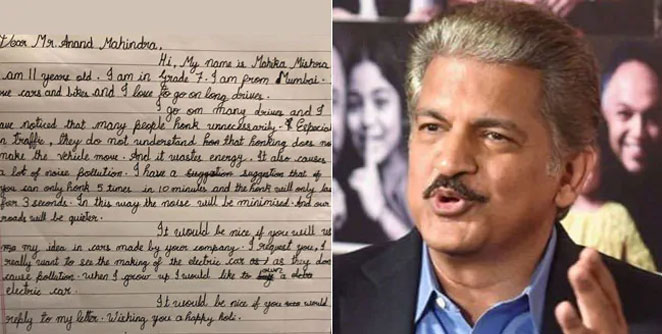 Dear Mr. Anand Mahindra,
Hi, My name is Mahika Mishra
am 11 years old. I am in Grade 7. I am from Mumbai.
ove cars and bikes and I love to go on long drives.
I go on many drives and I
ave noticed that many people honk unnecessarily. Especial
n traffic, they do not understand that honking does no
make the vehicle move. And it wastes energy. It also causes
a lot of noise pollution. I have a suggestion that if
you can only honk 5 times in 10 minutes and the honk will only las
for 3 seconds. In this way the noise will be minimised. And our
roads will be quieter.
It would be nice if you will us
my idea in cars made by your company. I request you, I
really want to see the making of the electric car as they don
cause pollution. When I grow up I would like to own a
electric car.
It would be nice if you would
reply to my letter. Wishing you a happy holi.